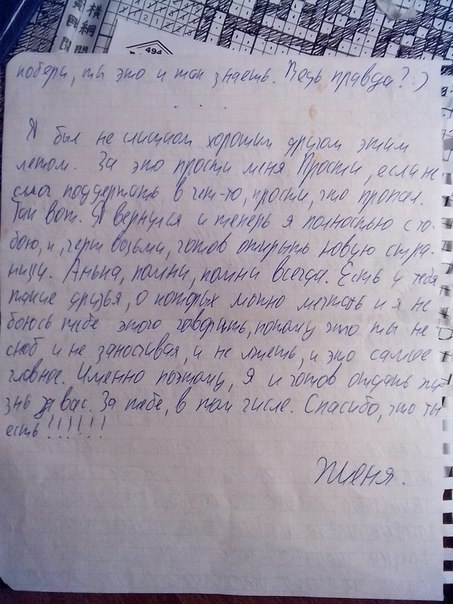 494
побери, ты это и так знаешь. Ведь правда? :)
Я был не слишком хорошим другом этим
летом. За это прости меня. Прости, если не
смог поддержать в чем-то, прости, что пропал.
Так вот. Я вернулся и теперь я полностью с то-
бою, и, черт возьми, готов открыть новую стра-
ницу. Анька, помни, помни всегда. Есть у тебя
такие друзья, о которых можно мечтать и я не
боюсь тебе этого говорить, потому что ты не
сноб и не заносчивая, и не лжешь, и это самое
главное. Именно поэтому, я и готов отдать жи-
знь за вас. За тебя, в том числе. Спасибо, что ты
есть!!!!!!
Женя.